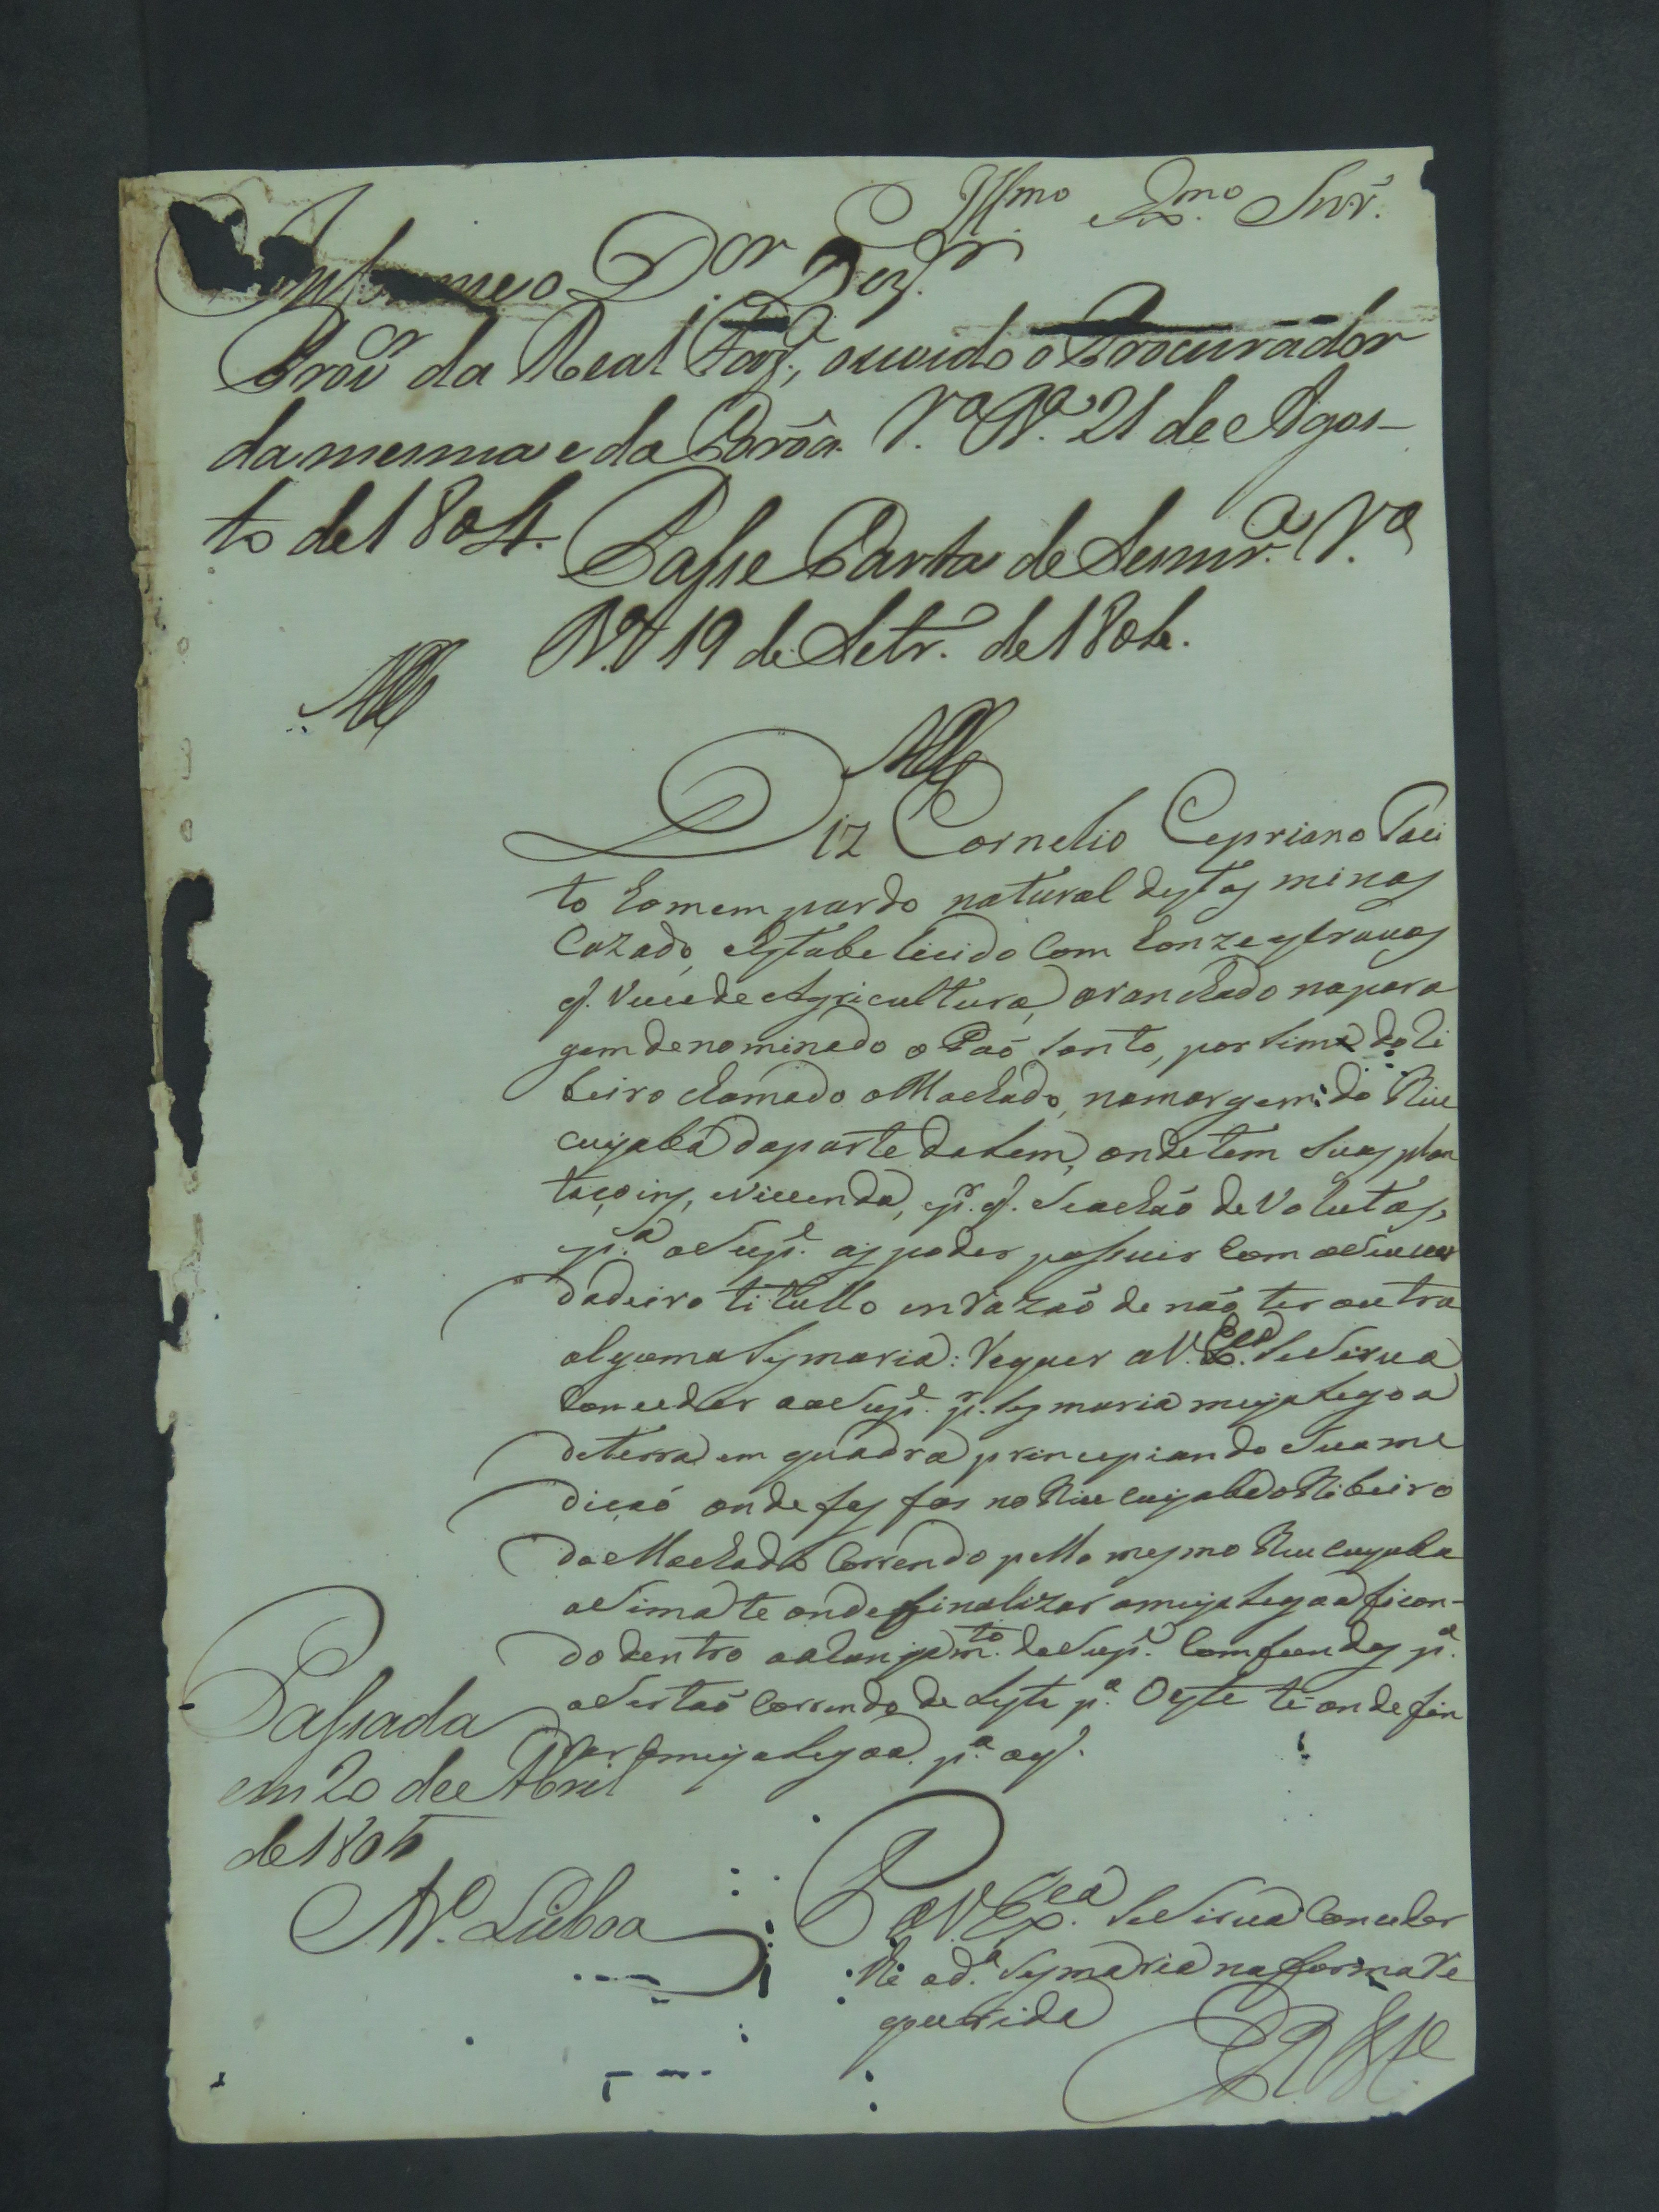 Illmo. Exmo. Snr.
Informe o Dor. Dezr.
Provor da Real Fazª, ouvido o Procurador
da mesma e da Corôa. Vª Nª 21 de Agos-
to de 1804.
Passe Carta de Sesmrª. Vª
Nª 19 de Setr. de 1804.
Diz Cornelio Cepriano Taci
to homem pardo natural destas minas
Cazado, estabelicido com honze escravos
q. vive de Agricultura, aranchado na para
gem denominado o Paó Santo, por sima do Ri
beiro chamado o Machado, na margem do Riu
cuyabá da parte dalem, onde tem suas plan
taçoins, e vivenda, e pr. q. se achaó devolutas,
e p.ª o Supe. as poder possuir com o Seu ver
dadeiro titullo em razaó de naó ter outra
algoma Sesmaria: Requer a V. Exª. Se Sirva
Conceder ao Supe. pr. Sesmaria meya legoa
de terra em quadra principiando Sua me
diçaó onde fas fos no Riu cuyabá o Ribeiro
do Machado Correndo pello mesmo Riu cuyaba
aSima te onde finalizar a meya legoa fican-
do dentro o alonjamto. do Supe. Com fundos p.ª
o Sertaó Correndo de Leste p.ª Oeste té onde fin
dar a meya legoa p.ª o q.
Passada
em 20 de Abril
de 1805
Nº. Lisboa
P. a V. Exciª. Se Sirva Conceder
lhe a d.ª Sesmaria na forma re
querida
E R Mce